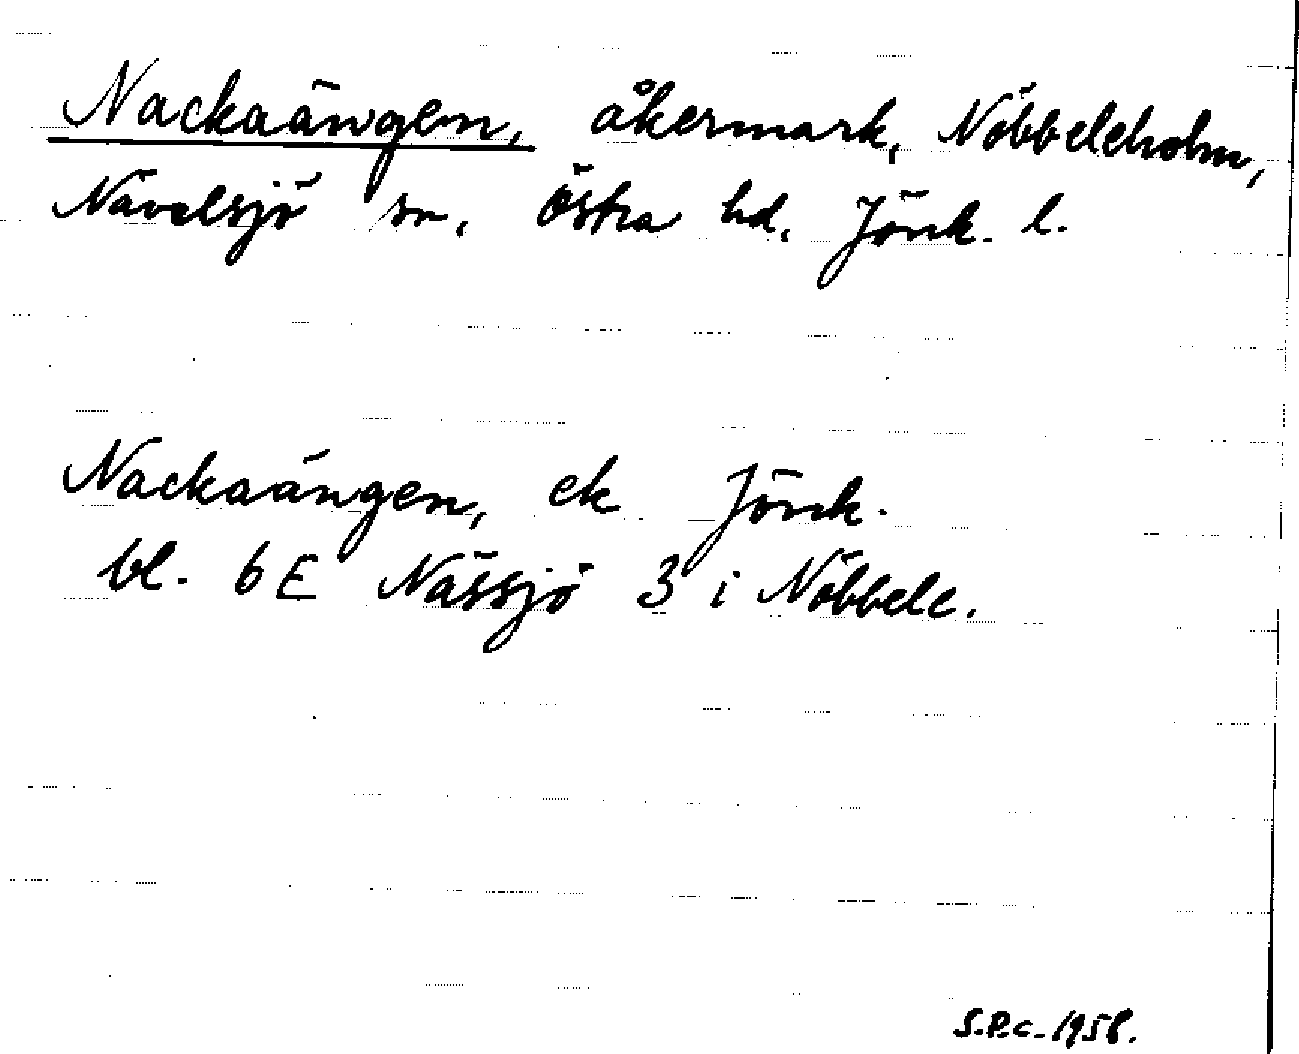 Nackaängen, åkermark, Nöbbeleholm,
Nävelsjö sn, Östra hd, Jönk. l.
Nackaängen, ek Jönk.
bl. 6E Nässjö 3 i Nöbbele.
S.P.c. 1958.